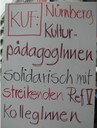 KUF: Nürnberg,
Kultur-
pädagogInnen
solidarisch mit
streikenden Ref V
KollegInnen